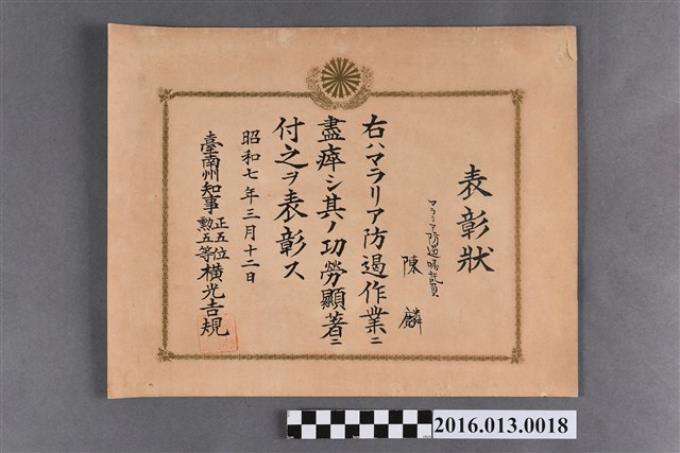 表彰狀
マラリア防遏囑託員
陳麟
右ハマラリア防遏作業ニ
盡瘁シ其ノ功勞顯著ニ
付之ヲ表彰ス
昭和七年三月十二日
臺南州知事正五位勲五等橫光吉規
2016.013.0018